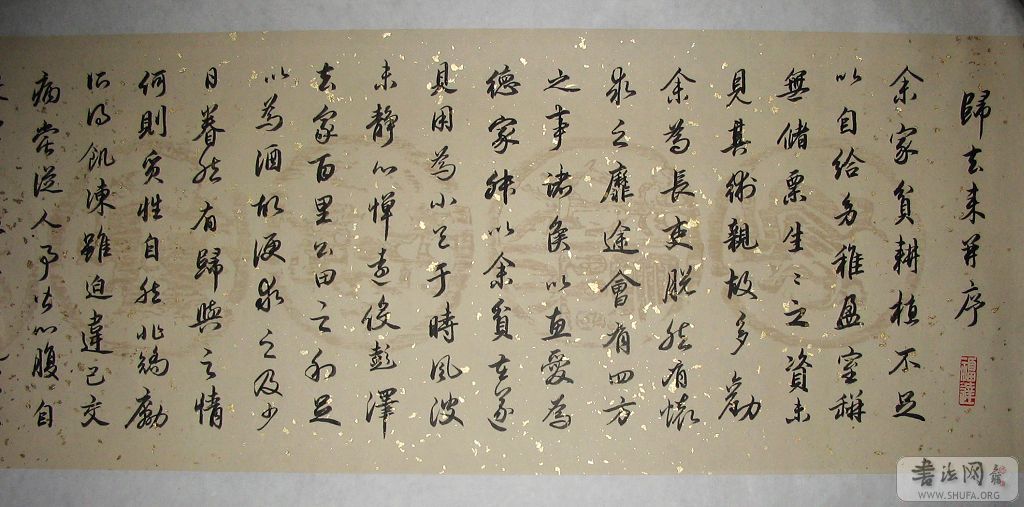 歸去来并序
余家貧耕植不足
以自給幼稚盈室缾
無儲粟生〻之資未
見其術親故多勸
余為長吏脱然有懷
求之靡途會有四方
之事諸侯以惠愛為
德家叔以余貧苦遂
見用為小邑于時風波
未静心憚遠役彭澤
去家百里公田之利足
以為酒故便求之及少
日眷然有歸與之情
何則質性自然非矯勵
所得飢凍雖迫違己交
病嘗從人事皆口腹自
書法网
WWW.SHUFA.ORG